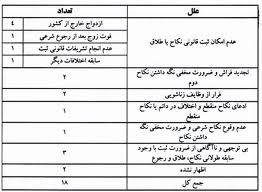 علل	تعداد
عدم امکان ثبت قانونی نکاح یا طلاق
ازدواج خارج از کشور	٤
فوت زوج بعد از رجوع شرعی	١
عدم انجام تشریفات قانونی ثبت	١
سابقه اختلافات دیگر	١
تجدید فراش و ضرورت مخفی نگه داشتن نکاح دوم	٢
فرار از وظایف زناشویی	٢
ادعای نکاح منقطع و اختلاف در دائم یا نکاح منقطع	١
عدم وقوع نکاح شرعی و ضرورت مخفی نگه داشتن نکاح	١
بی توجهی و ناآگاهی از ضرورت ثبت با وجود سابقه طولانی نکاح، طلاق و رجوع	٣
اظهار نشده	٢
جمع کل	١٨